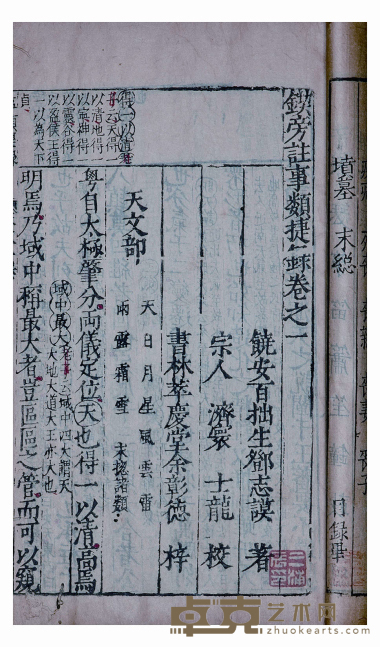 墳墓 末総
目録畢
鍥旁註事類捷錄卷之一
饒安百拙生鄧志謨 著
宗人 濟寰 士龍 校
書林萃慶堂余彰德 梓
天文部
天日月星風雲雷
雨露霜雪 末捴諸類
粵自太極肇分兩儀定位天也得一以清高焉
域中最大老子云域中四大謂天
大地大道大王亦大也
明焉乃域中稱最大者豈區區之管而可以窺
得一以清
老子云天得一
以清地得一
以寧神得一
以靈谷得一
以盈侯王得
一以為天下
貞
卓克艺术网
zhuokearts.com